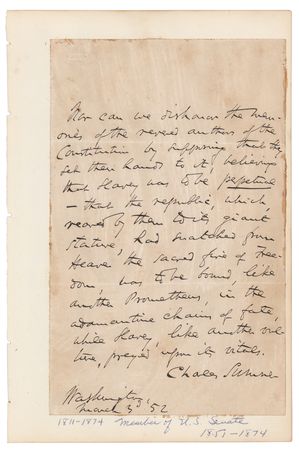 Nor can we dishonor the mem-
ories of the revered authors of the
Constitution by supposing that they
set their hands to it, believing
that slavery was to be perpetual
— that the republic, which
reared by them to its giant
stature, had snatched from
Heaven the sacred fire of Free-
dom, was to be bound, like
another Prometheus, in the
adamantine chains of fate,
while Slavery, like another vul-
ture, preyed upon its vitals.
Charles Sumner
Washington
March 3d '52
1811-1874 Member of U.S. Senate
1851-1874